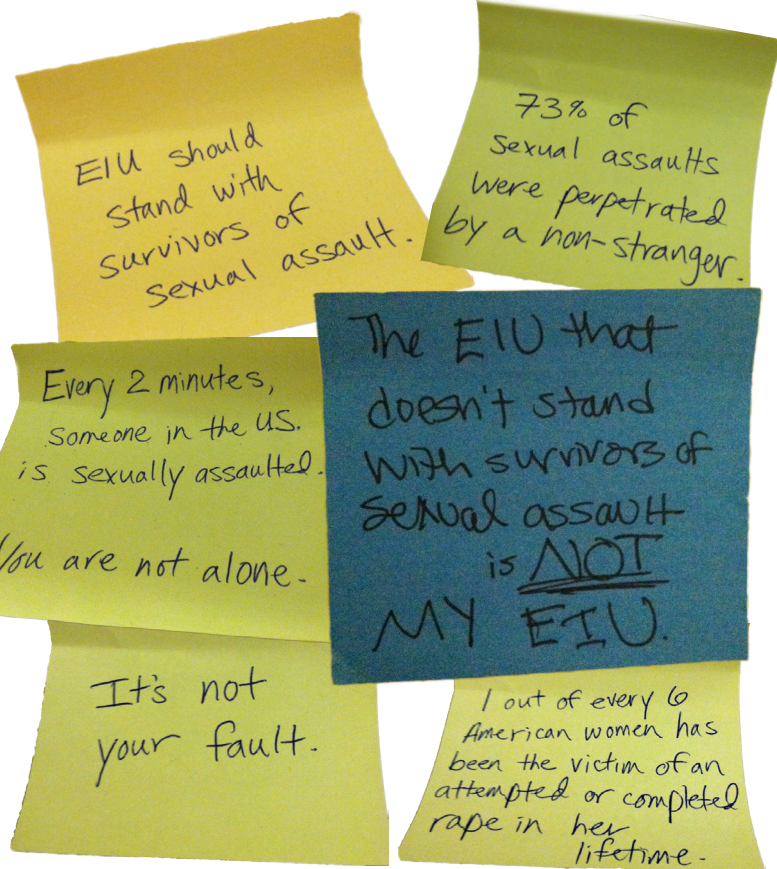 EIU should
stand with
survivors of
sexual assault.
73% of
sexual assaults
were perpetrated
by a non-stranger.
Every 2 minutes,
someone in the US.
is sexually assaulted.
You are not alone.
The EIU that
doesn't stand
with survivors of
sexual assault
is NOT
MY EIU.
It's not
your fault.
1 out of every 6
American women has
been the victim of an
attempted or completed
rape in her
lifetime.